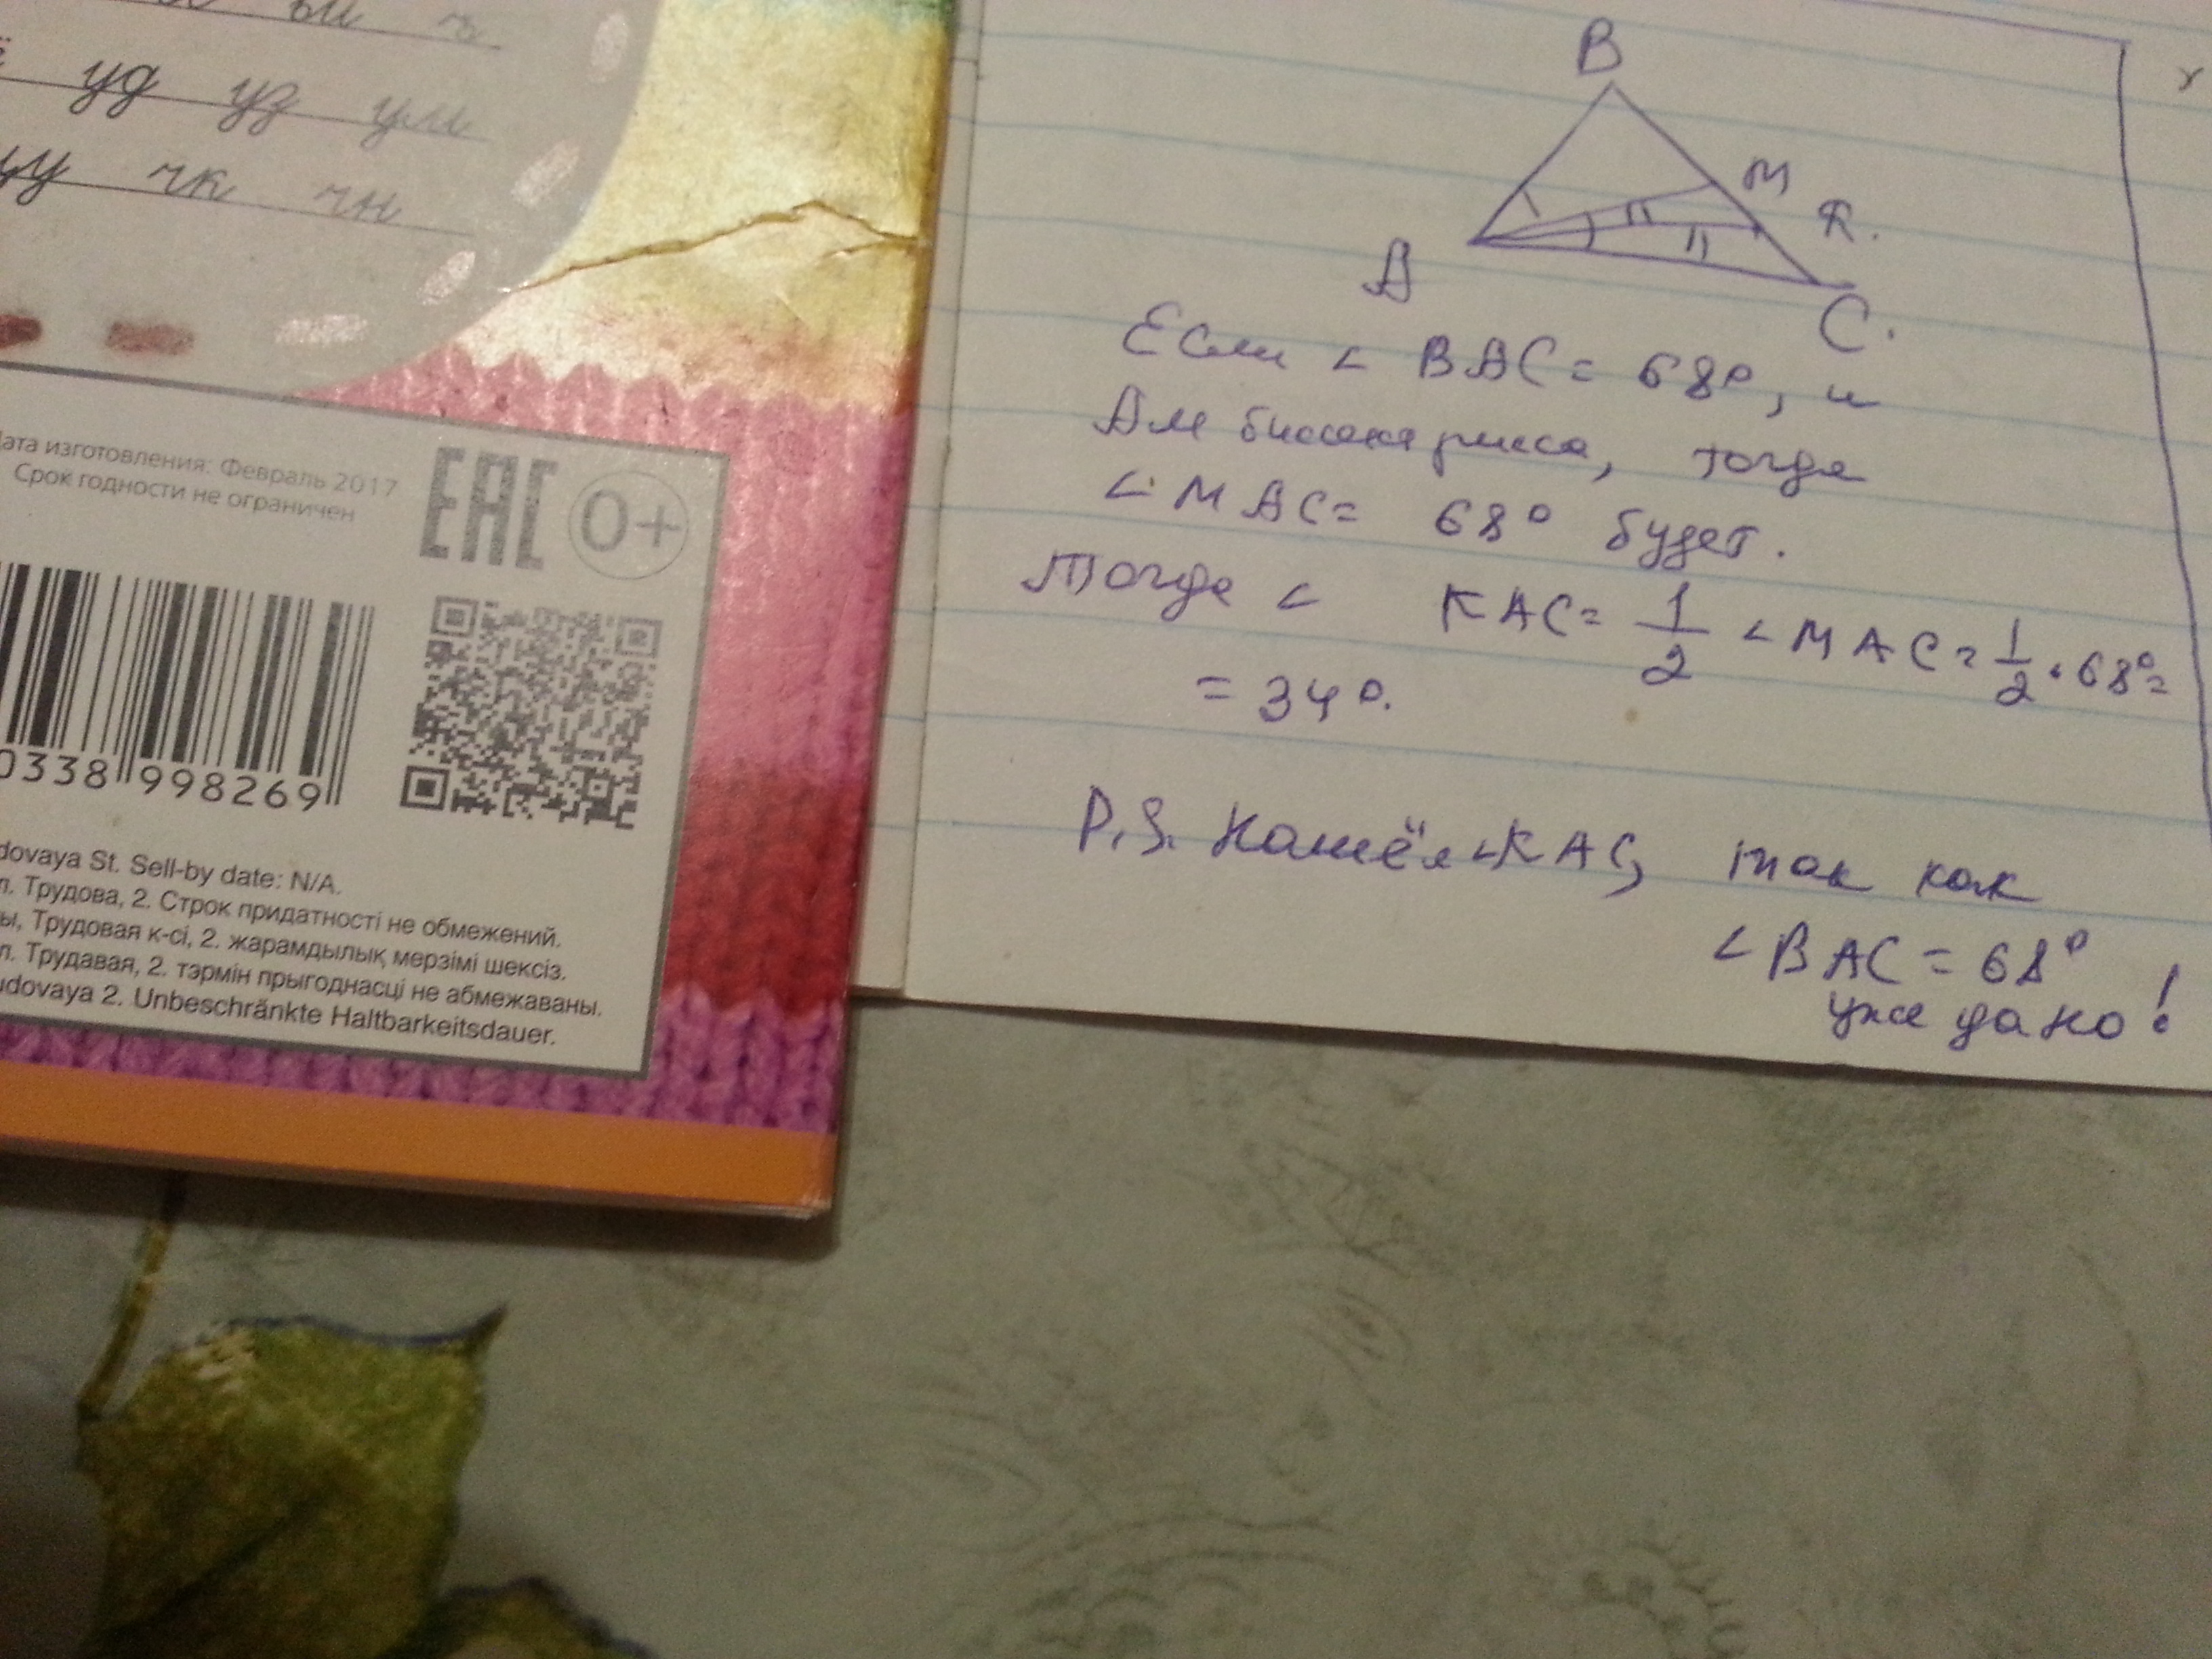 ы ъ
уд уз ум
уу чк чн
Дата изготовления: Февраль 2017
Срок годности не ограничен
EAC 0+
0338 998269
dovaya St. Sell-by date: N/A.
л. Трудова, 2. Строк придатності не обмежений.
ы, Трудовая к-сі, 2. жарамдылық мерзімі шексіз.
л. Трудавая, 2. тэрмін прыгоднасці не абмежаваны.
udovaya 2. Unbeschränkte Haltbarkeitsdauer.
B
M
K.
A
C.
Если < BAC = 68°, и
AM биссектрисса, тогда
< MAC = 68° будет.
Тогда < KAC = 1/2 < MAC = 1/2 · 68° =
= 34°.
P.S. Нашёл <KAC, так как
< BAC = 68°
уже дано!